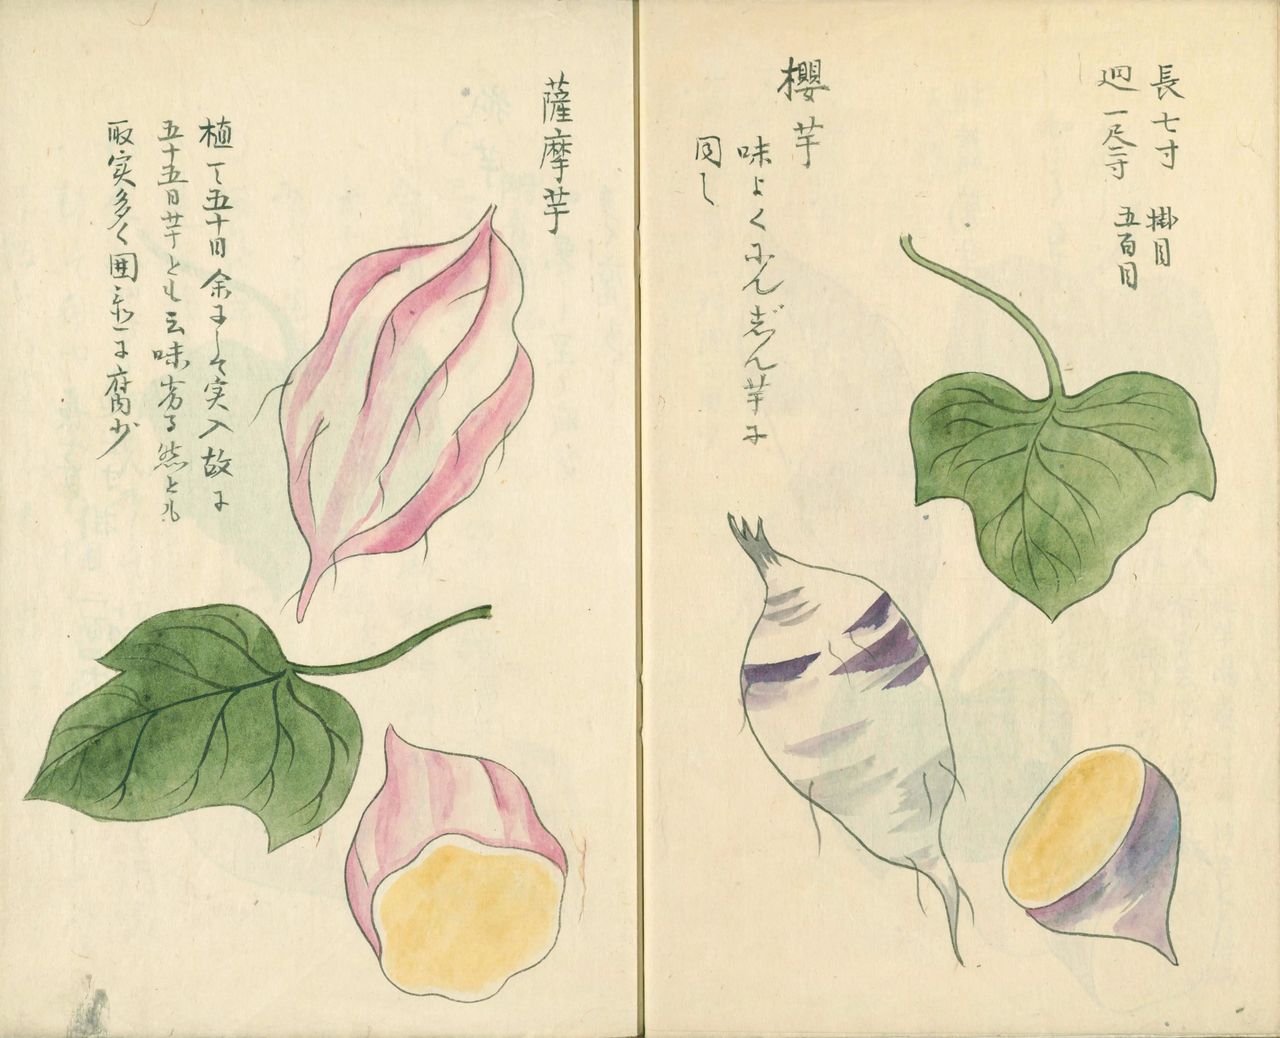 長七寸 掛目
廻一尺二寸 五百目
櫻芋
味よくにんじん芋に
同し
薩摩芋
植て五十日余にして実入故に
五十五日芋とも云味劣る然とも
取実多く囲 に腐少